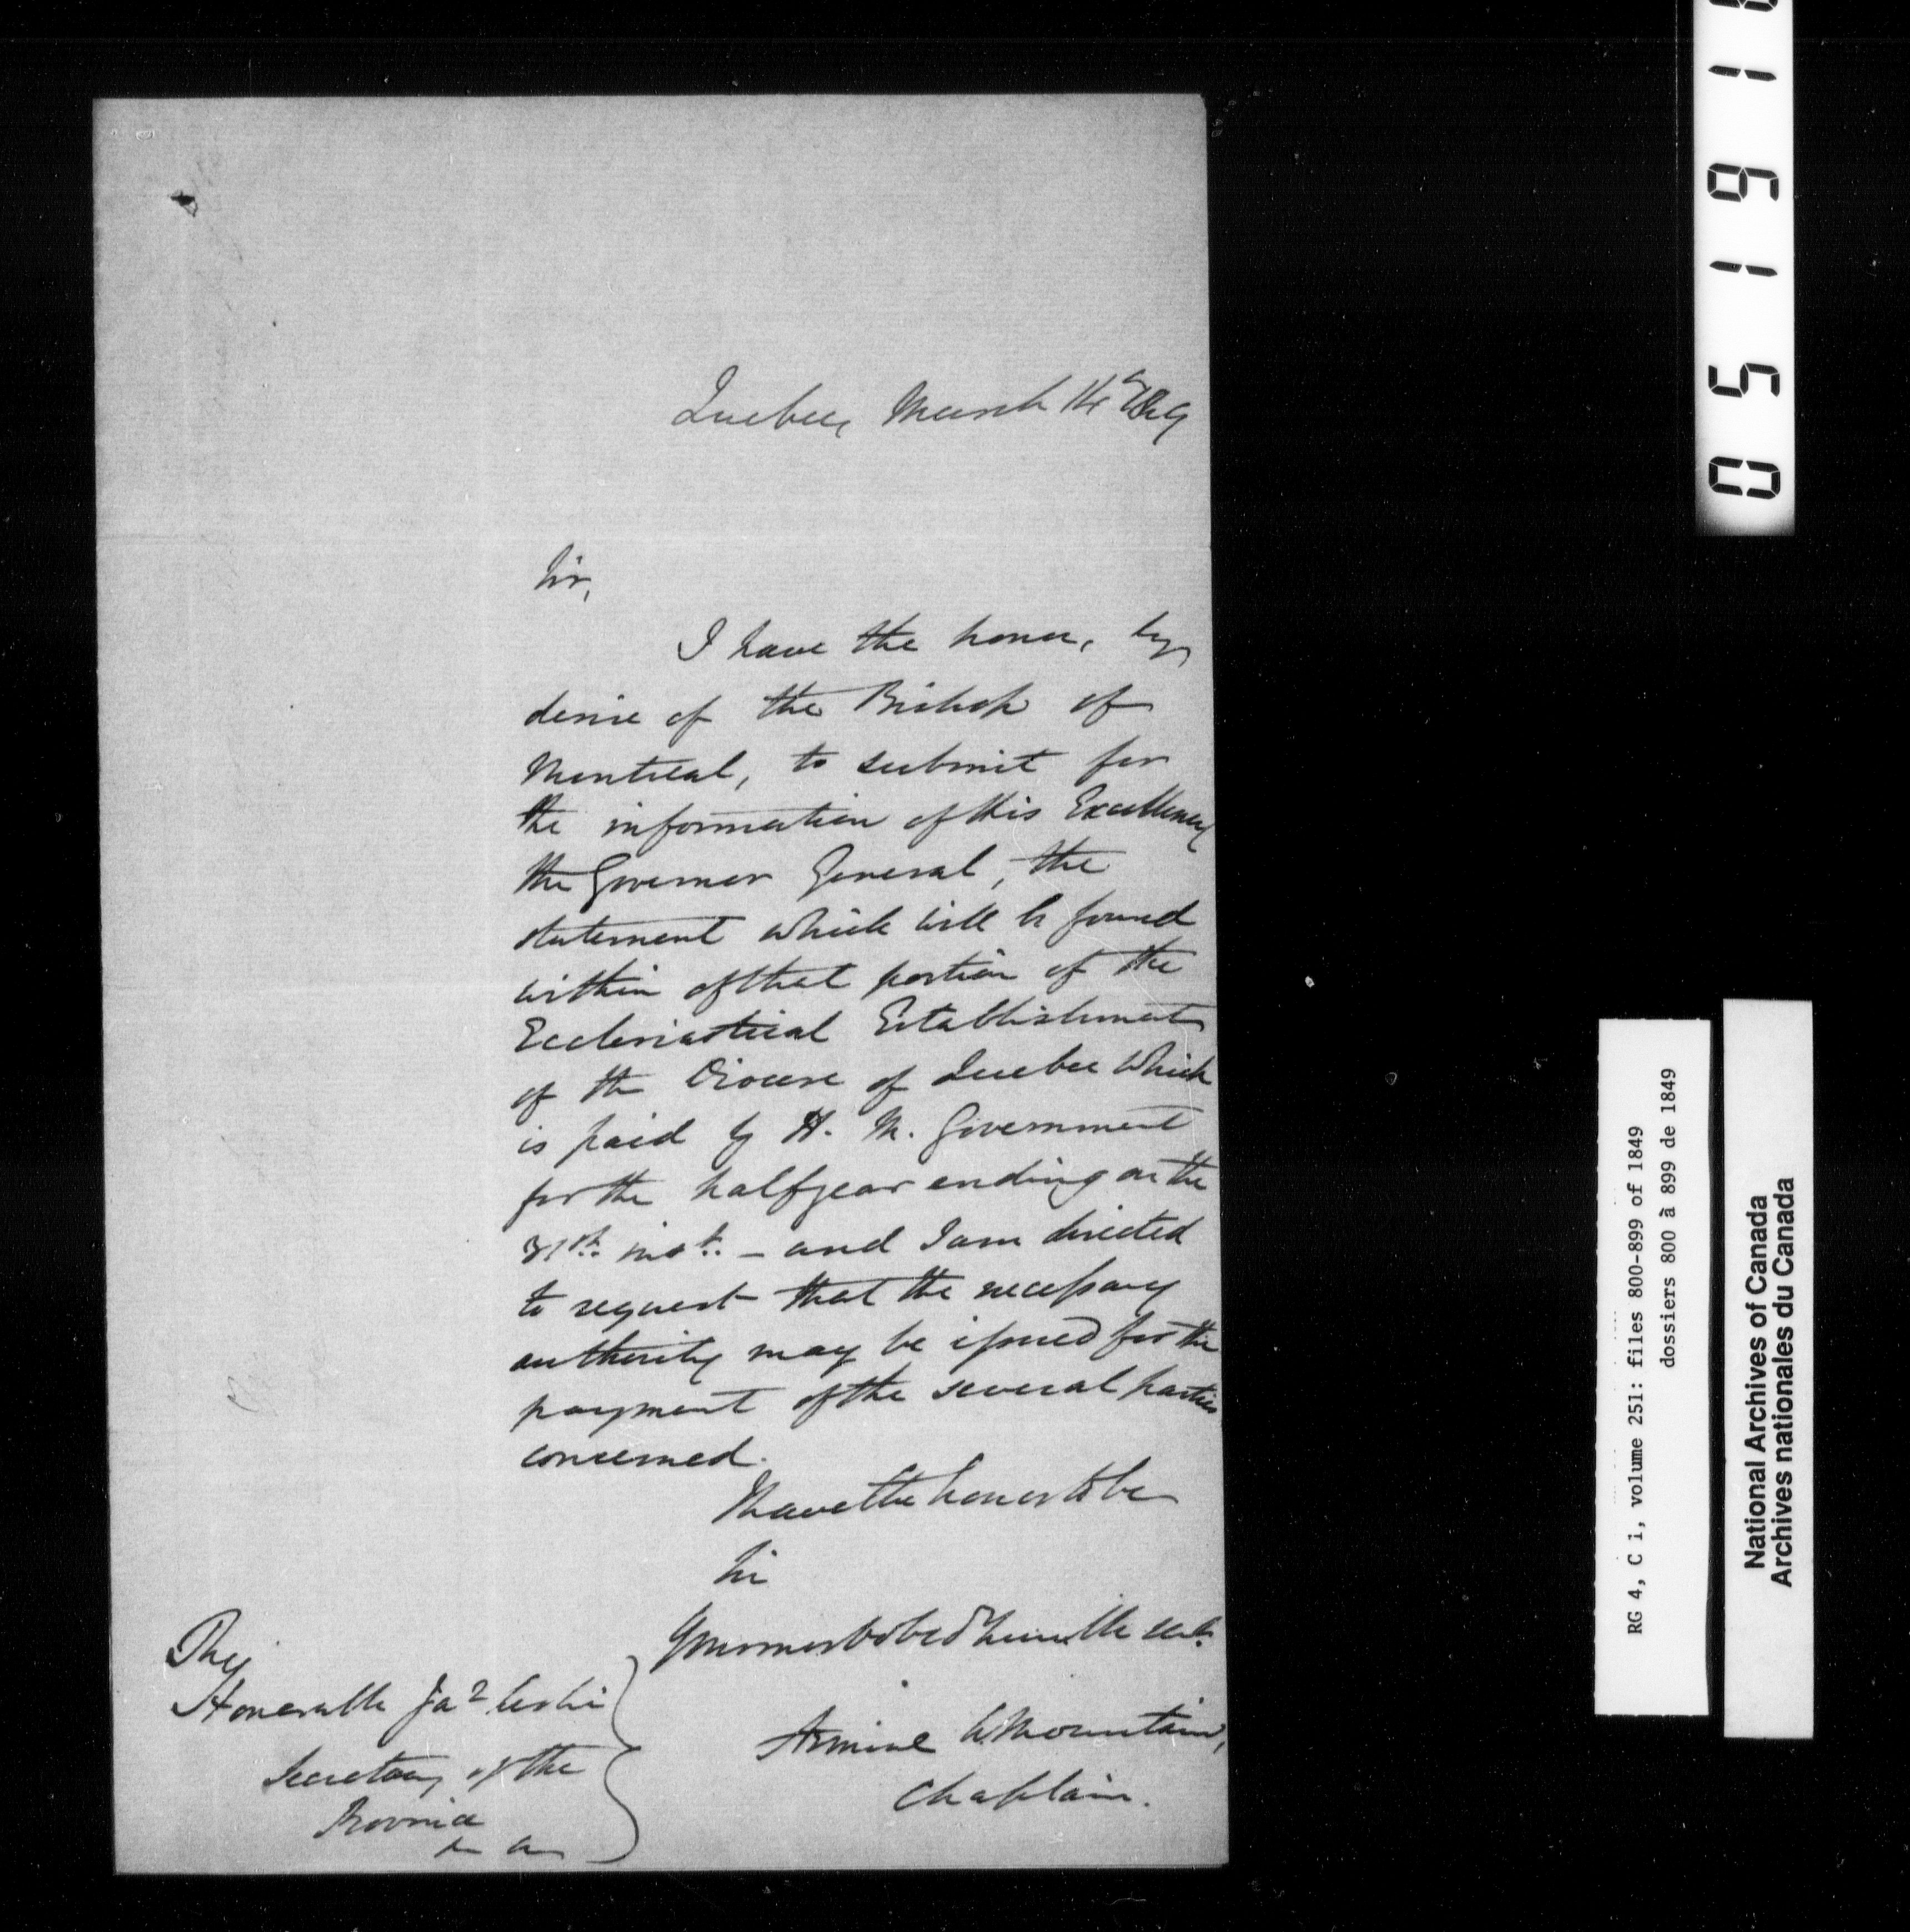 Quebec, March 14th 1849
Sir,
I have the honor, by
desire of the Bishop of
Montreal, to submit for
the information of His Excellency
the Governor General, the
statement which will be found
within of that portion of the
Ecclesiastical Establishment
of the Diocese of Quebec which
is paid by H. M. Government
for the half year ending on the
31st. inst. – and I am directed
to request that the necessary
authority may be issued for the
payment of the several parties
concerned.
I have the honor to be
Sir
Your most obed humble servt.
Armine W. Mountain,
Chaplain.
The
Honorable Jas Leslie
Secretary of the
Province
&c &c
051916
RG 4, C i, volume 251: files 800-899 of 1849
dossiers 800 à 899 de 1849
National Archives of Canada
Archives nationales du Canada